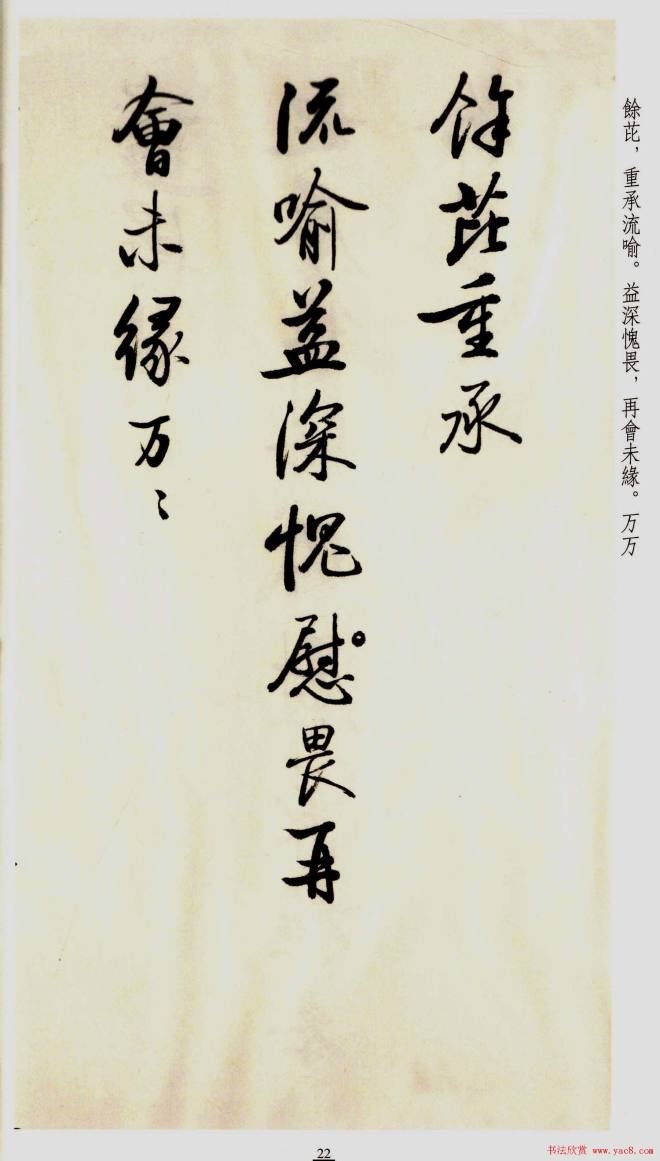 餘芘重承
流喻益深愧慰畏再
會未緣万〻
餘芘，重承流喻。益深愧畏，再會未緣。万万
22
书法欣赏 www.yac8.com